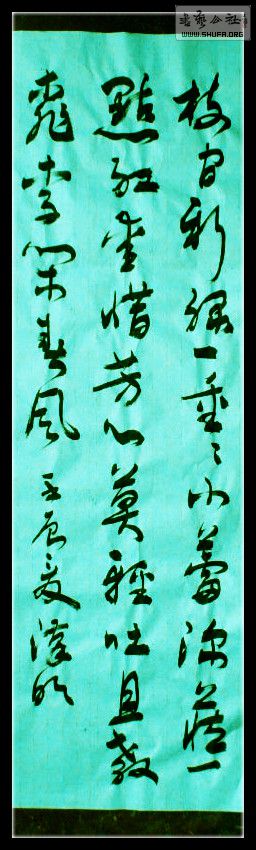 枝間新綠一重々小蕾深藏一
點紅愛惜芳心莫輕吐且教
桃李鬧春風 壬辰夏
書藝公社
WWW.SHUFA.ORG